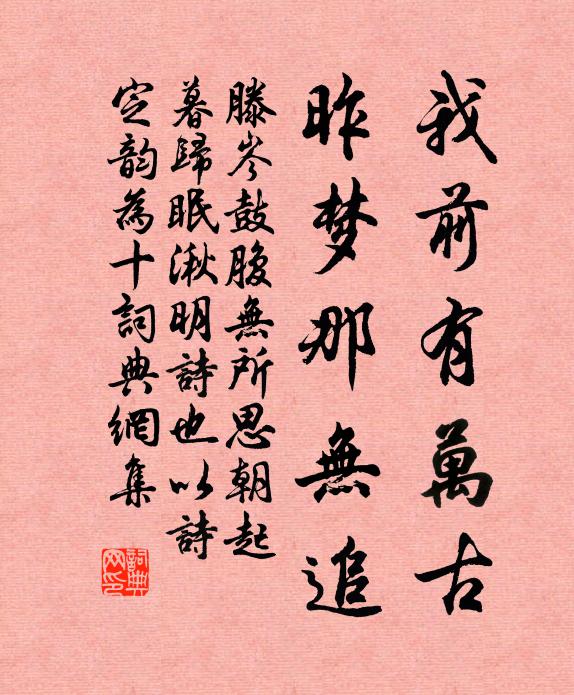 我前有萬古
昨梦那無追
滕岑鼓腹無所思朝起
暮歸眠湫明詩也以詩
定韵為十詞典網集
詞典網印